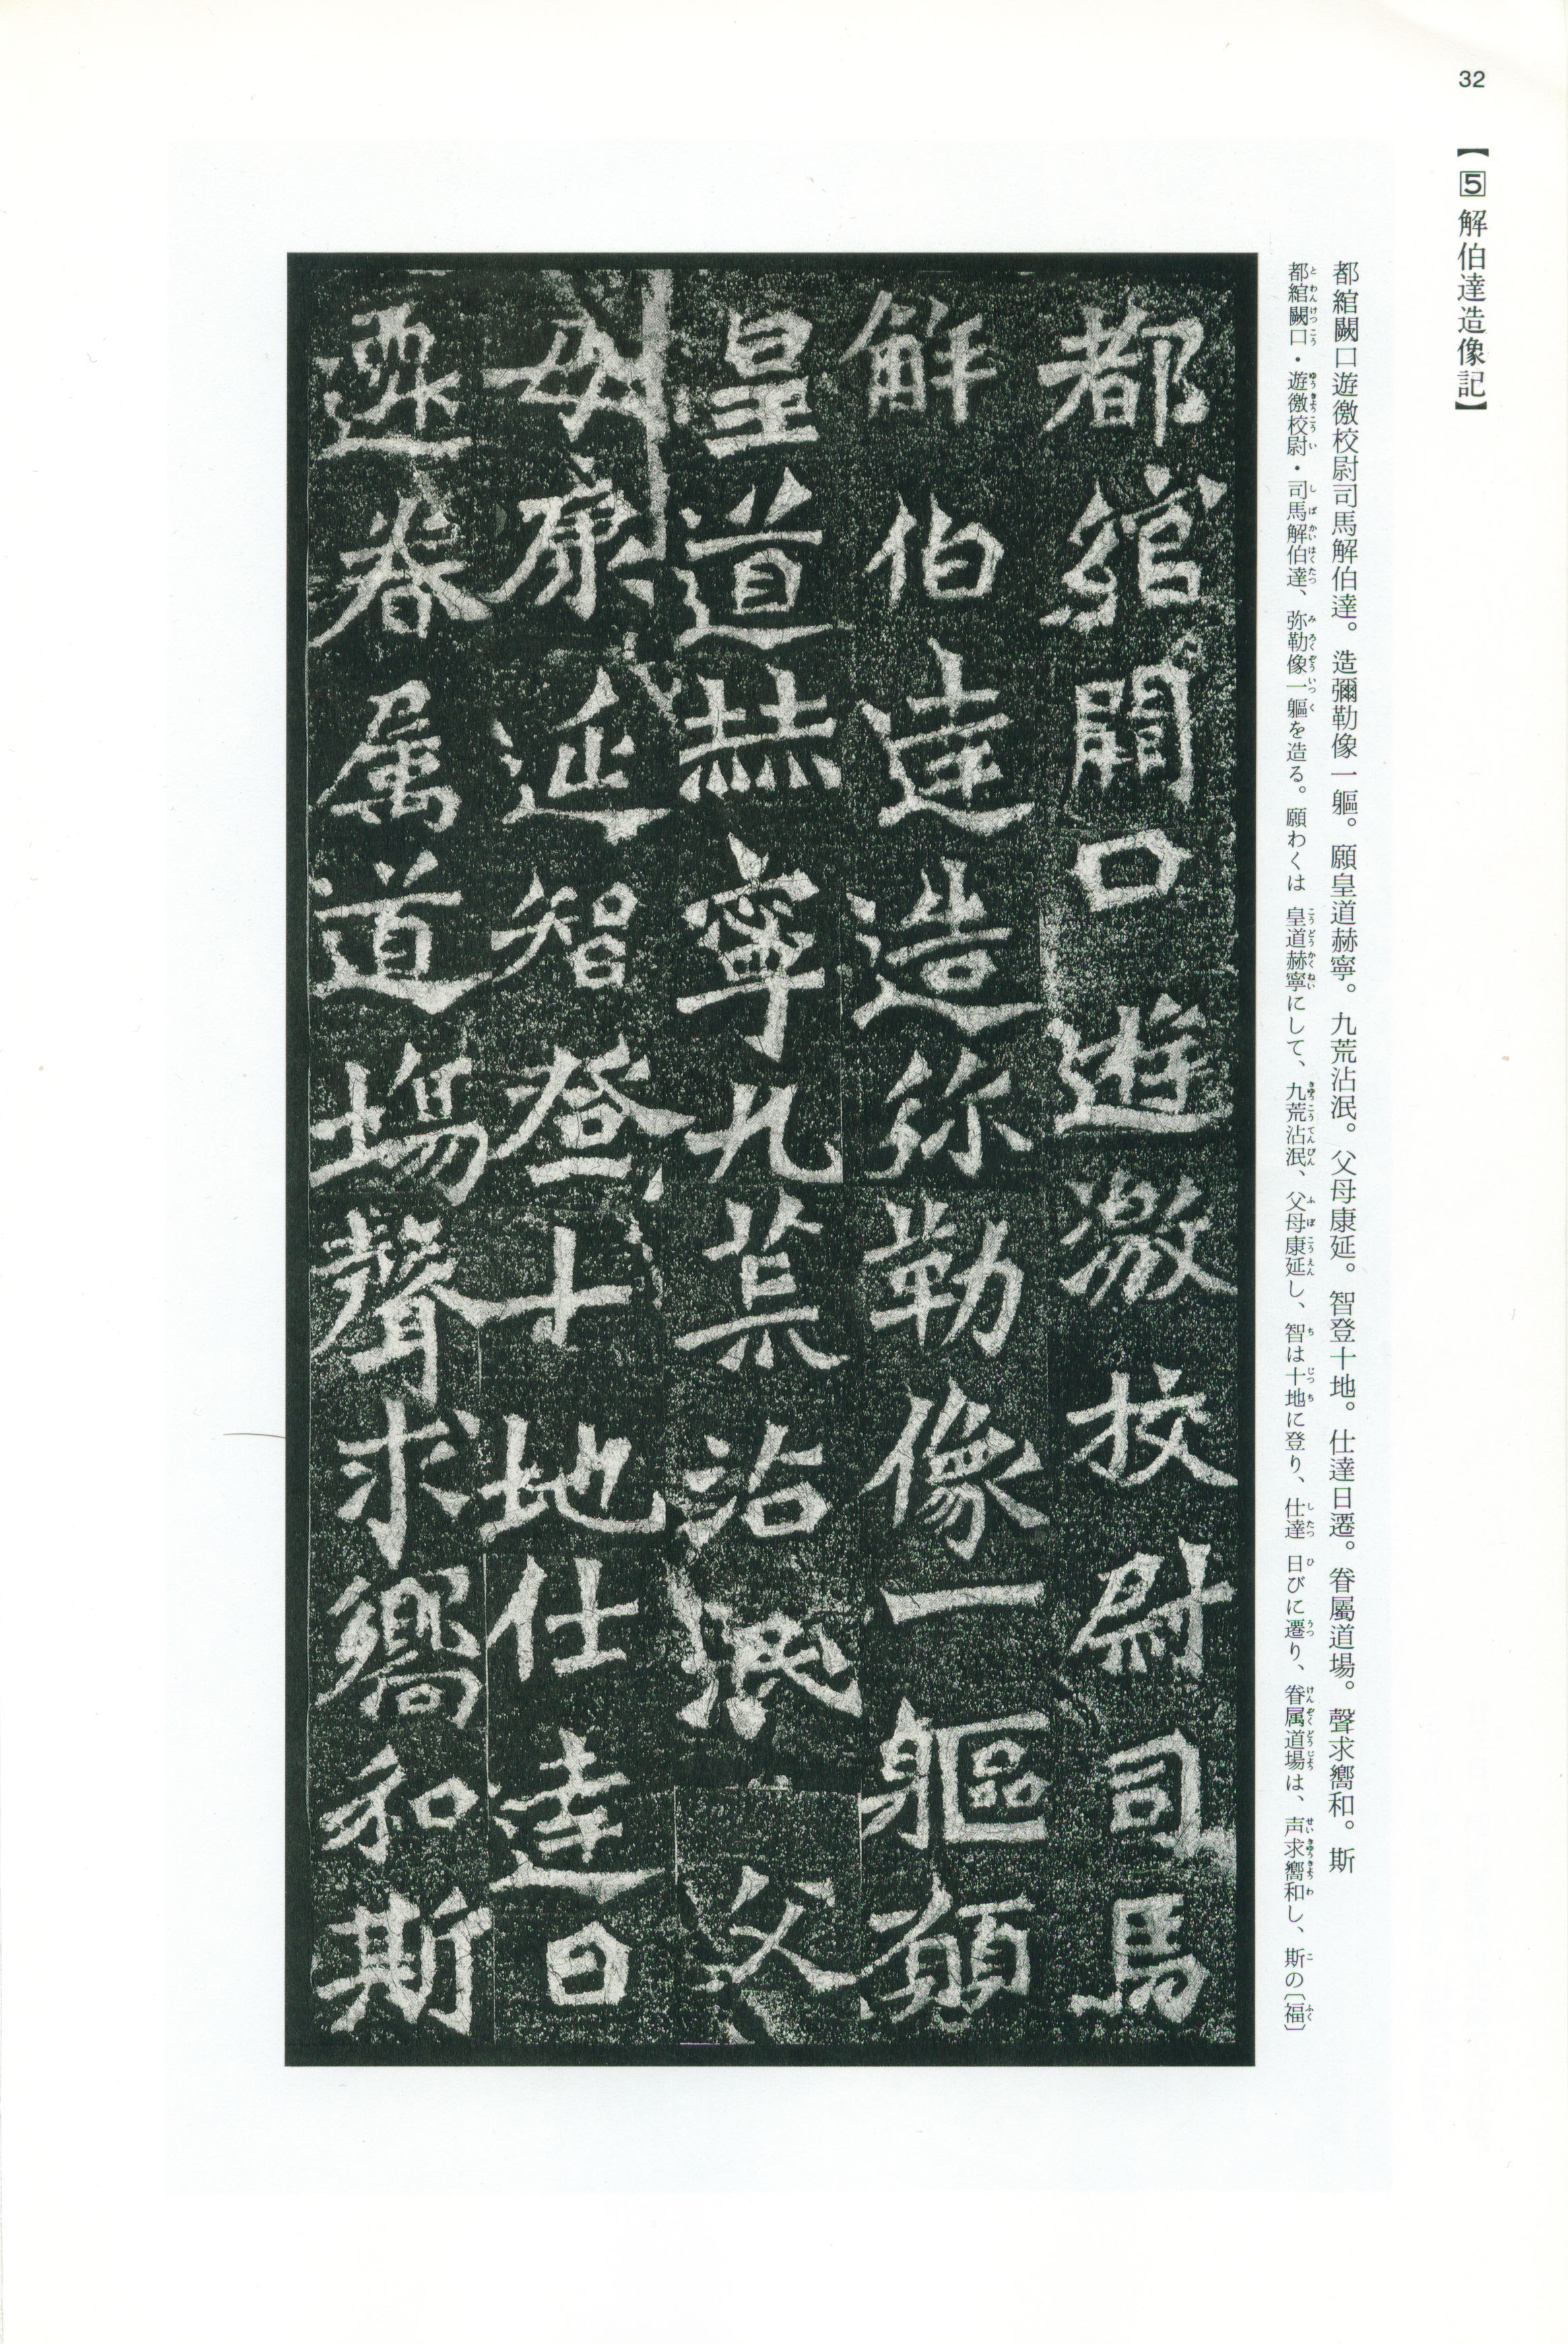 32
【5 解伯達造像記】
都綰闕口遊徼校尉司馬解伯達。造彌勒像一軀。願皇道赫寧。九荒沾泯。父母康延。智登十地。仕達日遷。眷屬道場。聲求嚮和。斯
都綰闕口・遊徼校尉・司馬解伯達、弥勒像一軀を造る。願わくは皇道赫寧にして、九荒沾泯、父母康延し、智は十地に登り、仕達日びに遷り、眷属道場は、声求嚮和し、斯の〔福〕
都綰闕口遊激校尉司馬
解伯達造弥勒像一軀願
皇道赫寧九荒沾泯父
母康延智登十地仕達日
遷眷属道場聲求嚮和斯